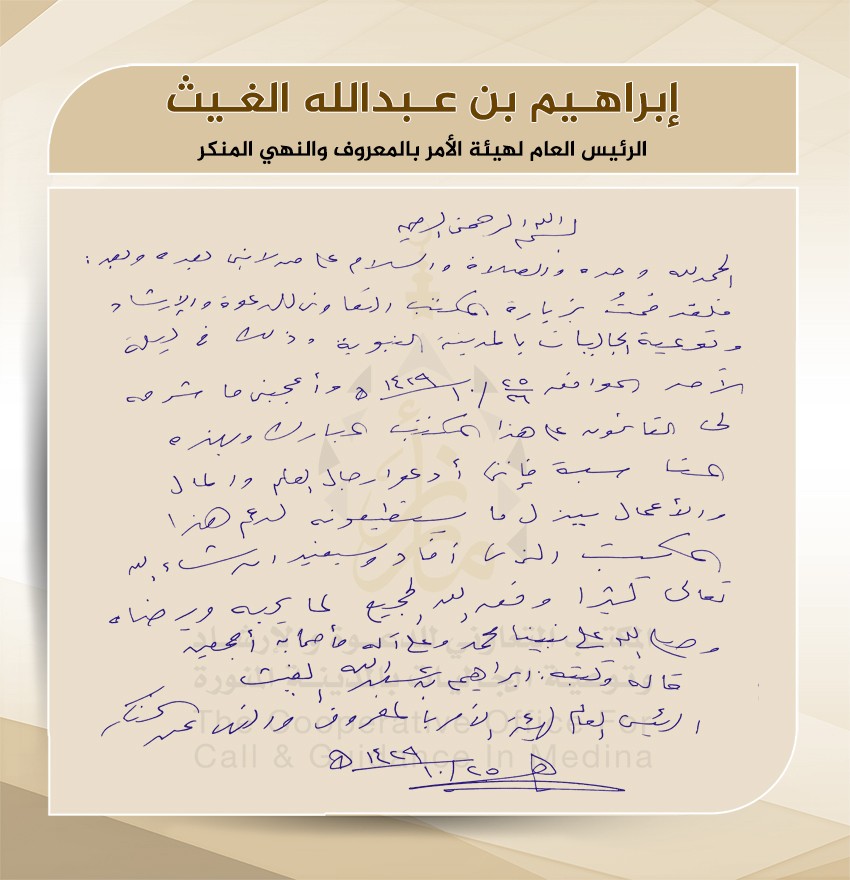 إبراهيم بن عبدالله الغيث
الرئيس العام لهيئة الأمر بالمعروف والنهي المنكر
بسم الله الرحمن الرحيم
الحمد لله وحده والصلاة والسلام على من لا نبي بعده وبعد:
فلقد قمتُ بزيارة المكتب التعاوني للدعوة والإرشاد
وتوعية الجاليات بالمدينة النبوية وذلك في ليلة
الأحد الموافق ٢٥/٢٦ /١٠/ ١٤٢٩ هـ وأعجبني ما شرحه
لي القائمون على هذا المكتب المبارك وبهذه
المناسبة فإنني أدعو رجال العلم والمال
والأعمال ببذل ما يستطيعونه لدعم هذا
المكتب الذي أفاد وسيفيد إن شاء الله
تعالى كثيرا وفق الله الجميع لما يحبه ويرضاه
وصلى الله على نبينا محمد وعلى آله وأصحابه أجمعين
قاله وكتبه: ابراهيم بن عبدالله الغيث
الرئيس العام لهيئة الأمر بالمعروف والنهي عن المنكر
٢٥/١٠/١٤٢٩ هـ
المكتب التعاوني للدعوة والإرشاد
وتوعية الجاليات بالمدينة المنورة
The Cooperative Office For
Call & Guidance In Medina